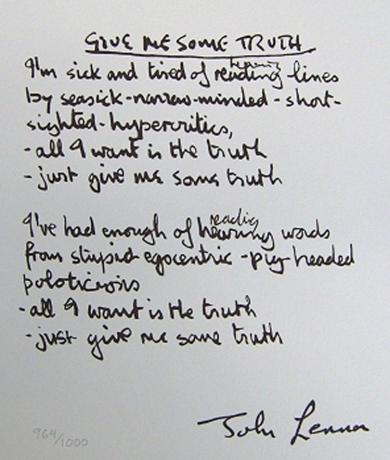 GIVE ME SOME TRUTH
hearing
I'm sick and tired of reading lines
by seasick-narrow-minded-short-
sighted-hypercritics,
-all I want is the truth
-just give me some truth
reading
I've had enough of hearing words
from stupid egocentric-pig-headed
poloticians
-all I want is the truth
-just give me some truth
John Lennon
964/1000